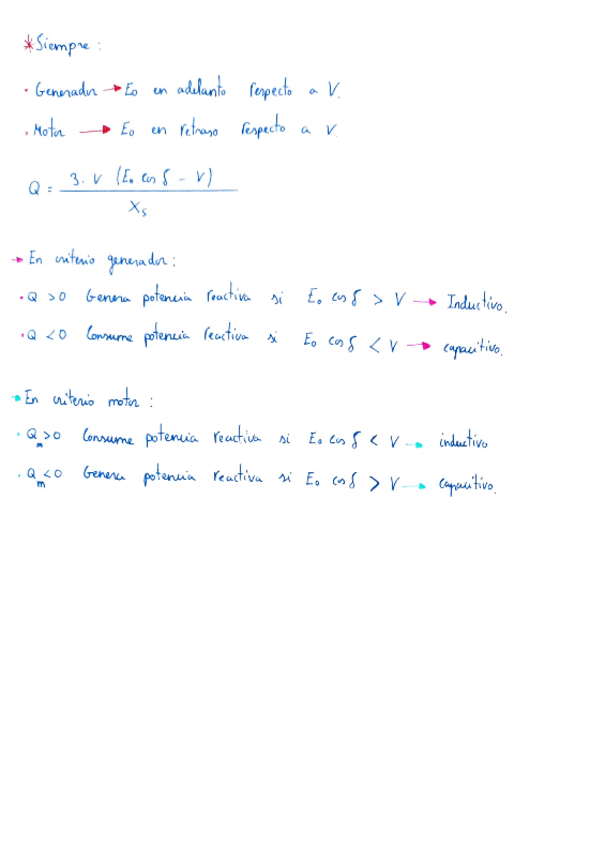 *Siempre :
· Generador → E₀ en adelanto respecto a V.
· Motor → E₀ en retraso respecto a V.
Q = 3. V (E₀ cos δ - V) / Xs
→ En criterio generador :
· Q > 0 Genera potencia reactiva si E₀ cos δ > V → Inductivo.
· Q < 0 Consume potencia reactiva si E₀ cos δ < V → capacitivo.
→ En criterio motor :
· Qm > 0 Consume potencia reactiva si E₀ cos δ < V → inductivo
· Qm < 0 Genera potencia reactiva si E₀ cos δ > V → capacitivo.